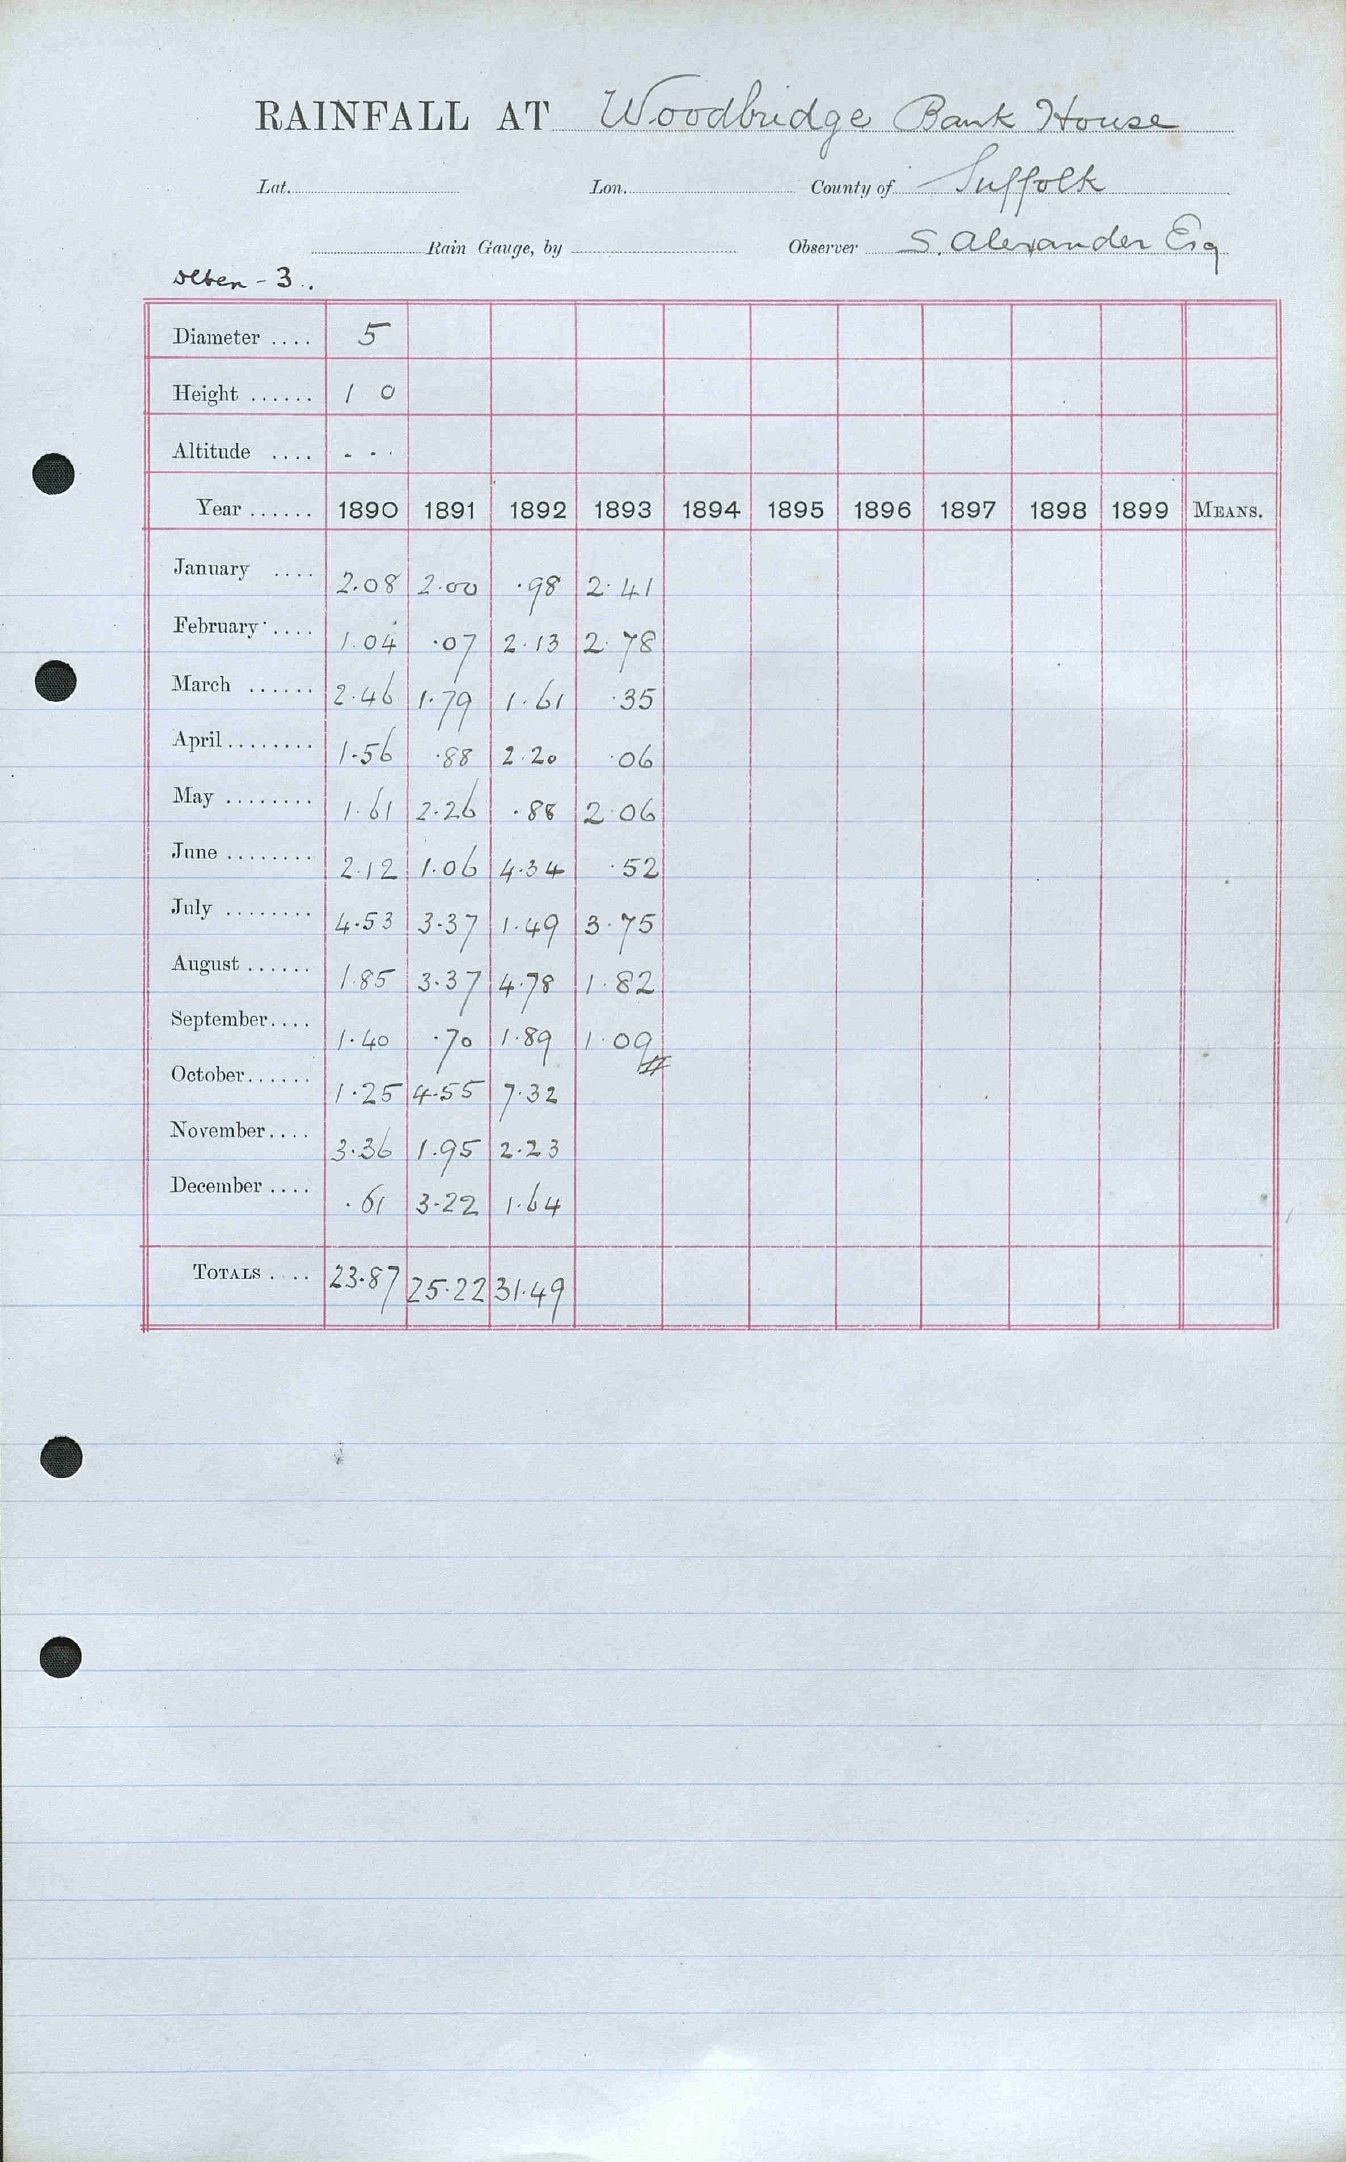 RAINFALL AT Woodbridge Bank House
Lat. Lon. County of Suffolk
Rain Gauge, by Observer S. Alexander Esq
Deben - 3.
Diameter .... 5
Height ...... 1 0
Altitude .... - - -
Year ...... 1890 1891 1892 1893 1894 1895 1896 1897 1898 1899 MEANS.
January .... 2.08 2.00 .98 2.41
February .... 1.04 .07 2.13 2.78
March ...... 2.46 1.79 1.61 .35
April ........ 1.56 .88 2.20 .06
May ........ 1.61 2.26 .88 2.06
June ........ 2.12 1.06 4.34 .52
July ........ 4.53 3.37 1.49 3.75
August ...... 1.85 3.37 4.78 1.82
September.... 1.40 .70 1.89 1.09
October...... 1.25 4.55 7.32
November.... 3.36 1.95 2.23
December .... .61 3.22 1.64
TOTALS .... 23.87 25.22 31.49